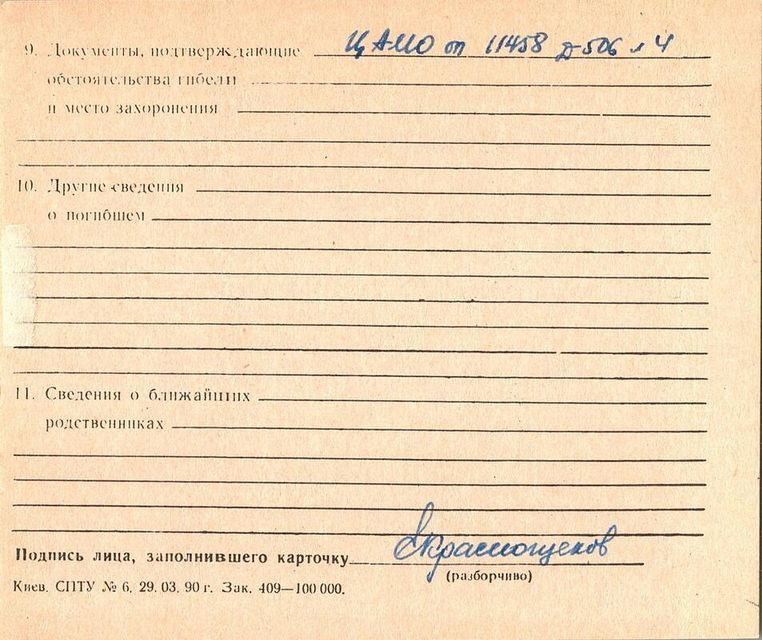 9. Документы, подтверждающие ЦАМО оп 11458 д-506 л 4
обстоятельства гибели
и место захоронения
10. Другие сведения
о погибшем
11. Сведения о ближайших
родственниках
Подпись лица, заполнившего карточку Краснощеков
(разборчиво)
Киев. СПТУ № 6, 29. 03. 90 г. Зак. 409—100 000.